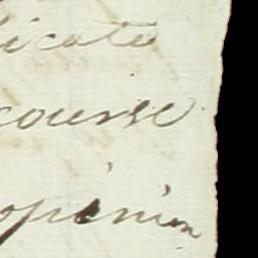 licate
course
opinion